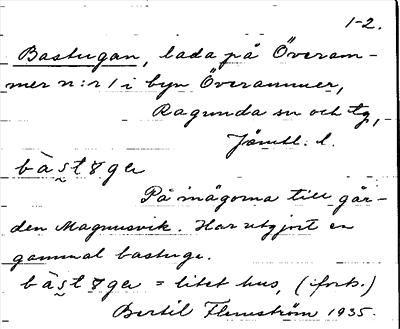 1-2.
Bastugan, lada på Överam-
mer n:r 1 i byn Överammer,
Ragunda sn och tg,
Jämtl. l.
bàs̬tȣga
På inägorna till går-
den Magnusvik. Har utgjort en
gammal bastuga.
bàs̬tȣga = litet hus, (i forts.)
Bertil Flemström 1935.